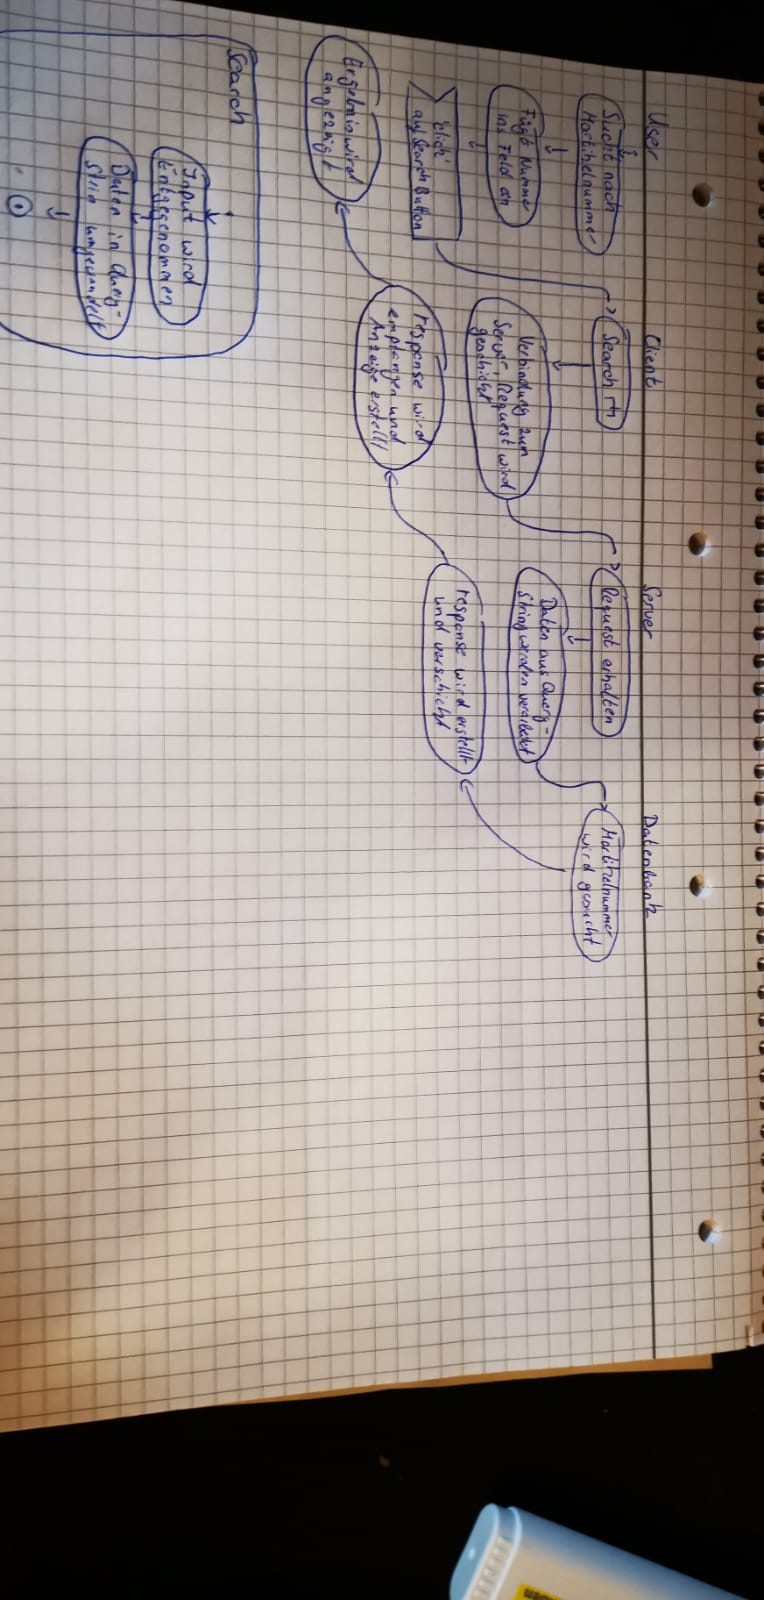 User
Client
Server
Datenbank
Sucht nach
Martikelnummer
Fügt Nummer
ins Feld ein
"Click"
auf Search Button
Ergebnis wird
angezeigt
Search
Verbindung zum
Server, Request wird
geschickt
response wird
empfangen und
Anzeige erstellt
Request erhalten
Daten aus Query-
String werden verarbeitet
response wird erstellt
und verschickt
Martikelnummer
wird gesucht
Search
Input wird
Entgegenommen
Daten in Query-
Strin umgewandelt